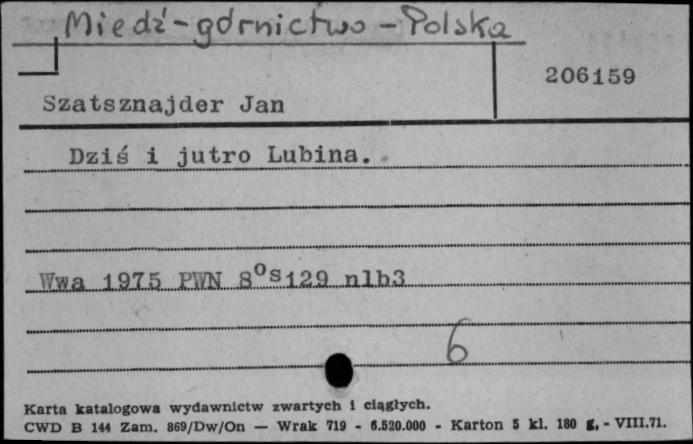 Miedź-górnictwo-Polska
206159
Szatsznajder Jan
Dziś i jutro Lubina.
Wwa 1975 PWN 8ºs129 nlb3
6
Karta katalogowa wydawnictw zwartych i ciągłych.
CWD B 144 Zam. 869/Dw/On — Wrak 719 - 6.520.000 - Karton 5 kl. 180 g, - VIII.71.